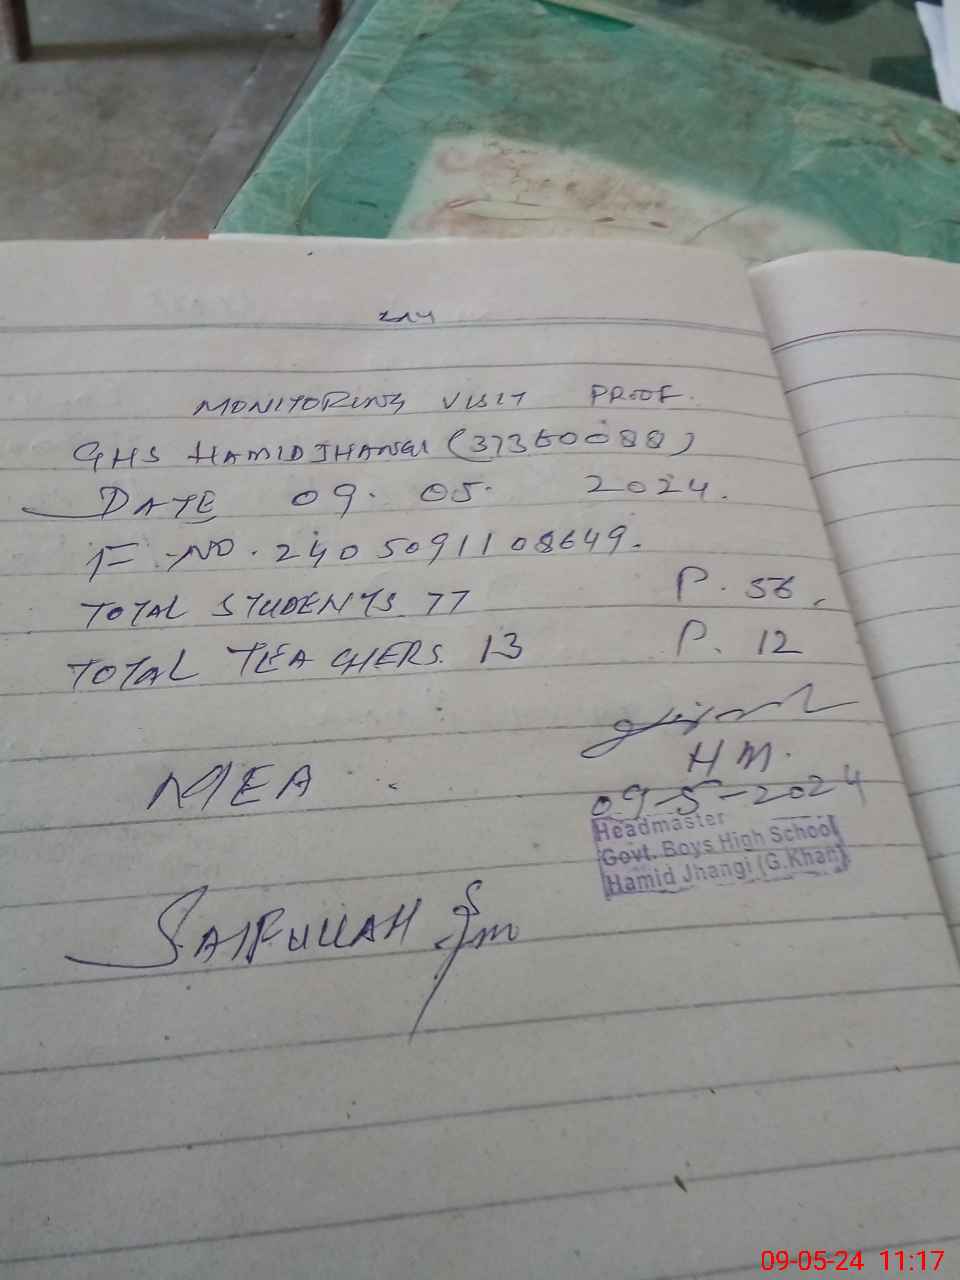 MONITORING VISIT PROOF.
GHS HAMID JHANGI (37360088)
DATE 09. 05. 2024.
F. NO. 2405091108649.
TOTAL STUDENTS 77 P. 56,
TOTAL TEACHERS. 13 P. 12
HM.
MEA
09-5-2024
Headmaster
Govt. Boys High School
Hamid Jhangi (G.Khan)
SAIFULLAH
09-05-24 11:17